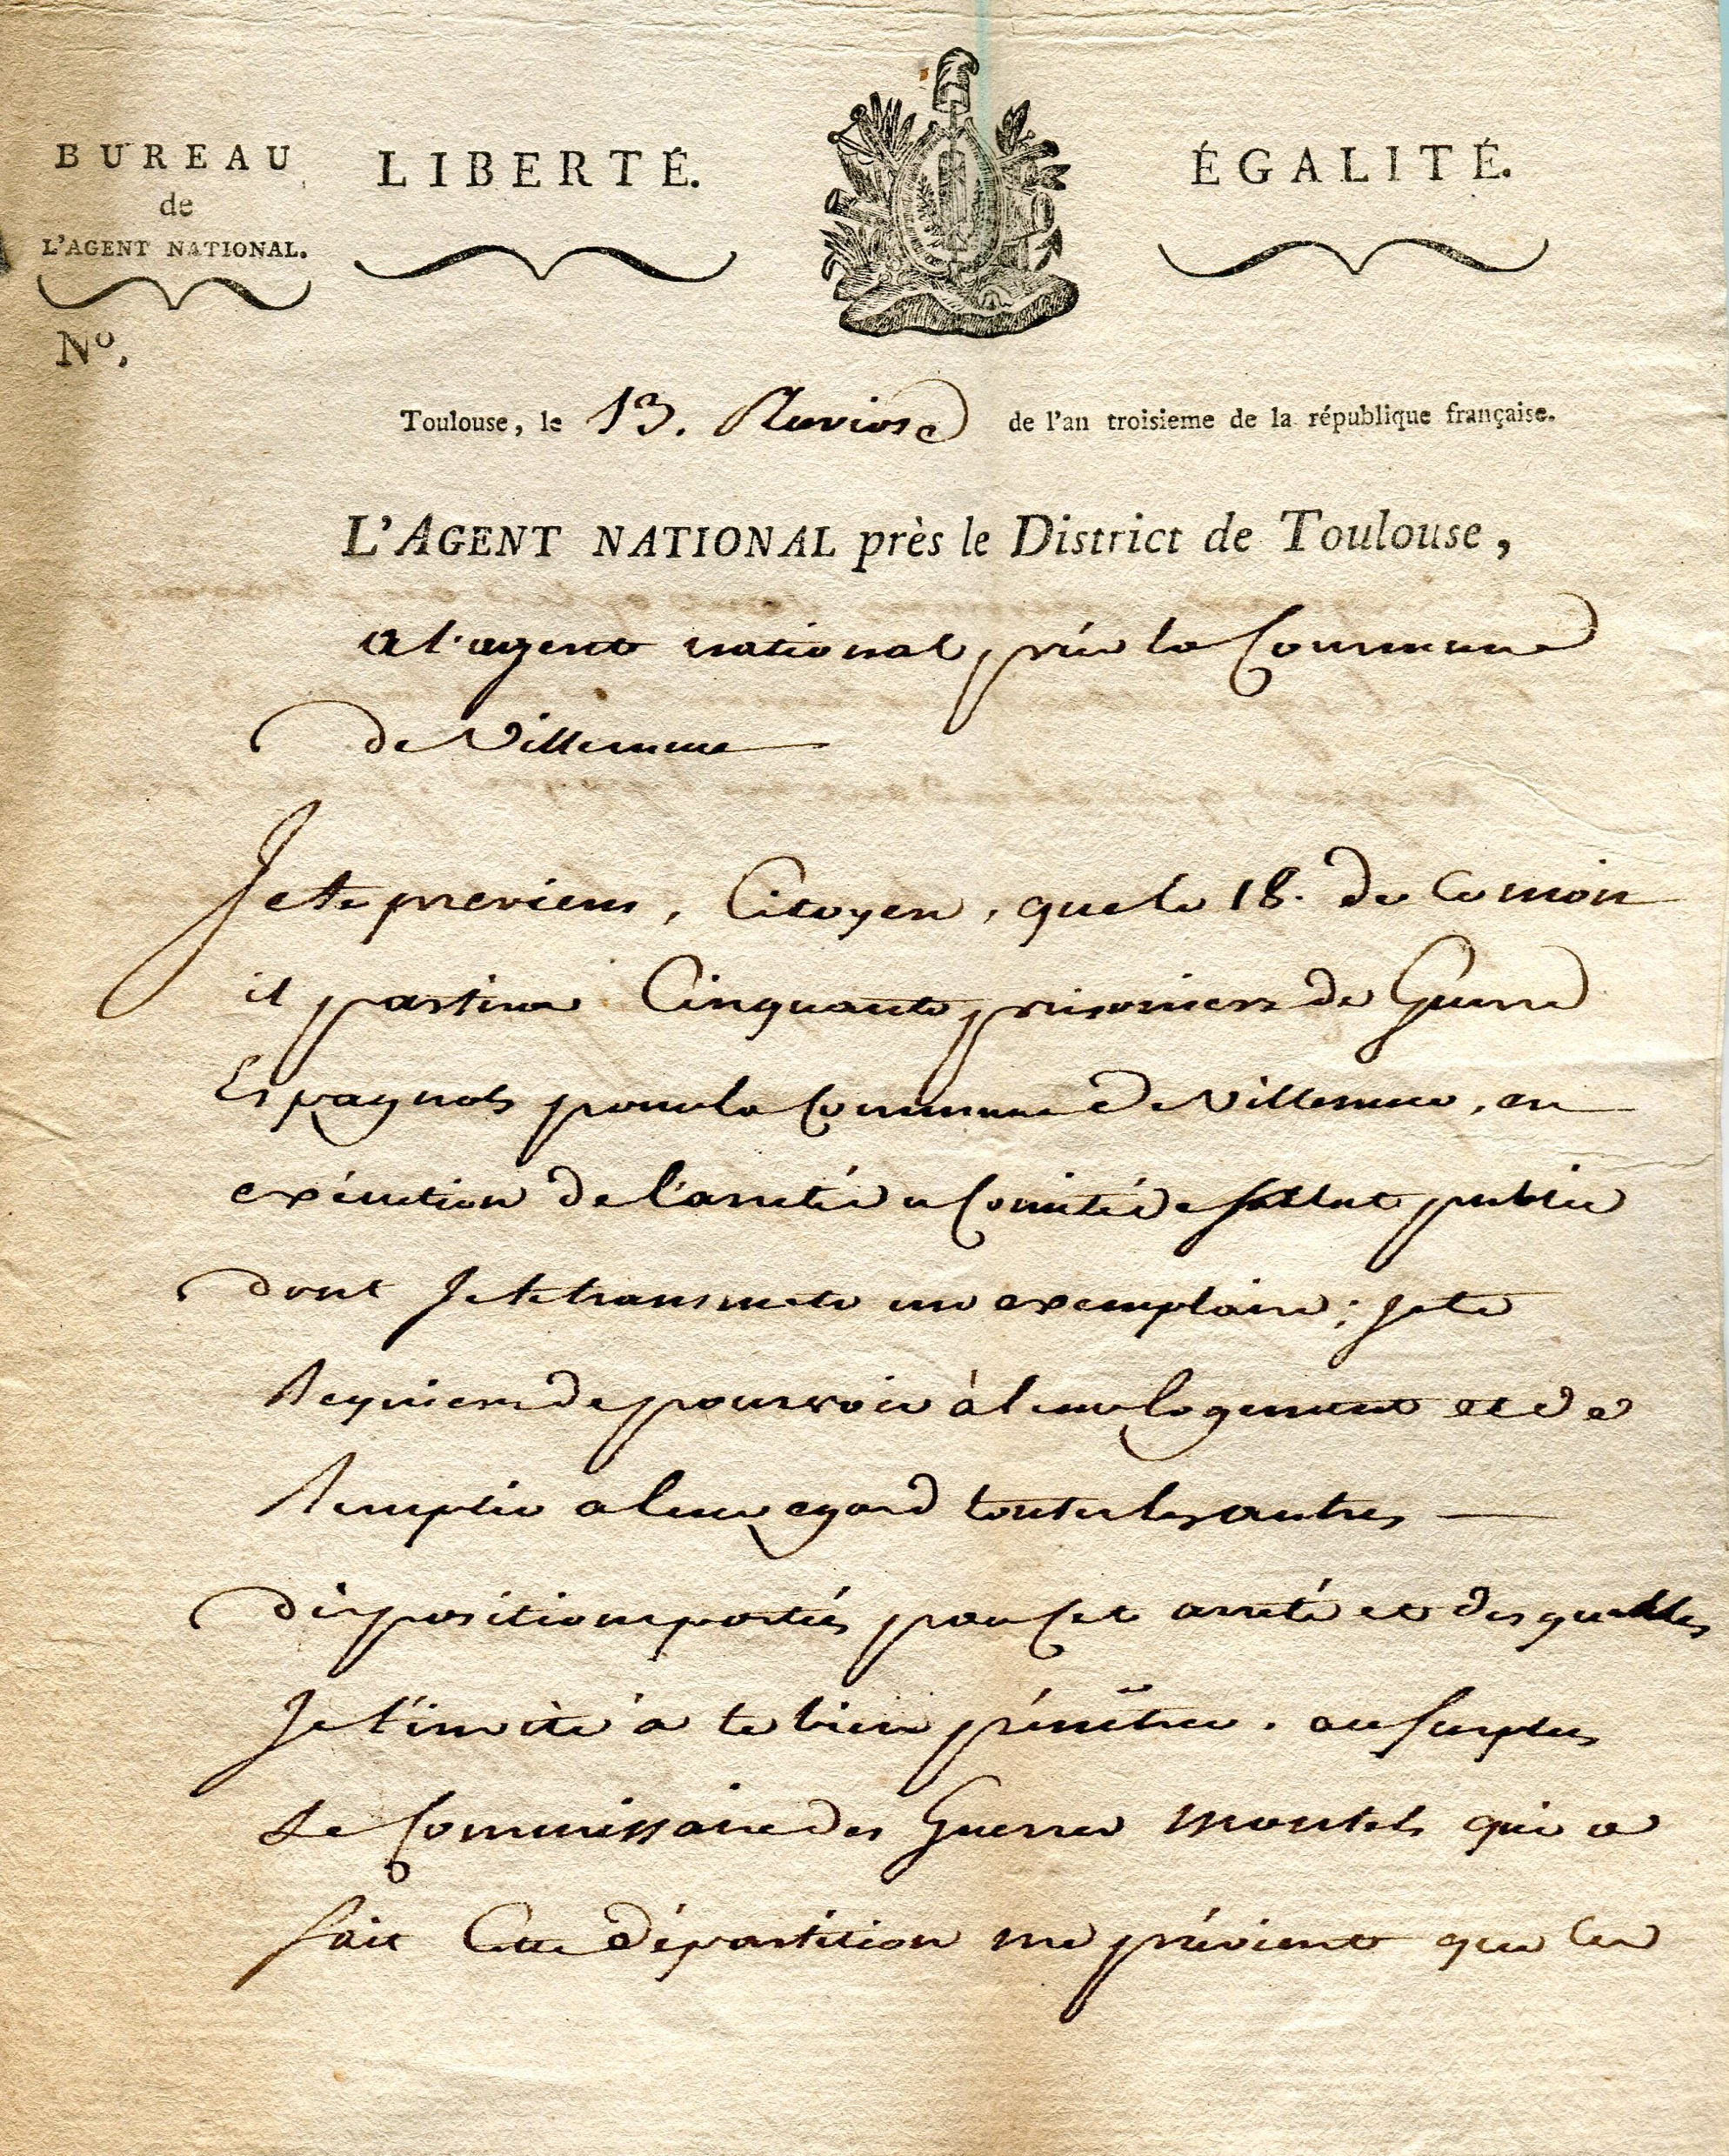 BUREAU
de
L'AGENT NATIONAL.
LIBERTÉ.
ÉGALITÉ.
Nº.
Toulouse, le 13. Pluviose de l'an troisieme de la république française.
L'AGENT NATIONAL près le District de Toulouse,
a l'agent national près la Commune
de Villemur
Je te previens, Citoyen, que le 18. de ce mois
il partira Cinquante prisoniers de Guerre
Espagnols pour la Commune de Villemur, en
exécution de l'arreté du Comité de Sallut public
dont Je te transmets un exemplaire; Je te
Requiers de pourvoir à leur logement et de
Remplir a leur egard toutes les autres
dispositions portées par Cet arreté et desquelles
Je t'invite à te bien pénétrer. au Surplus
Le Commissaire des Guerres Montels qui a
fait Cette départition me prévient que Ces